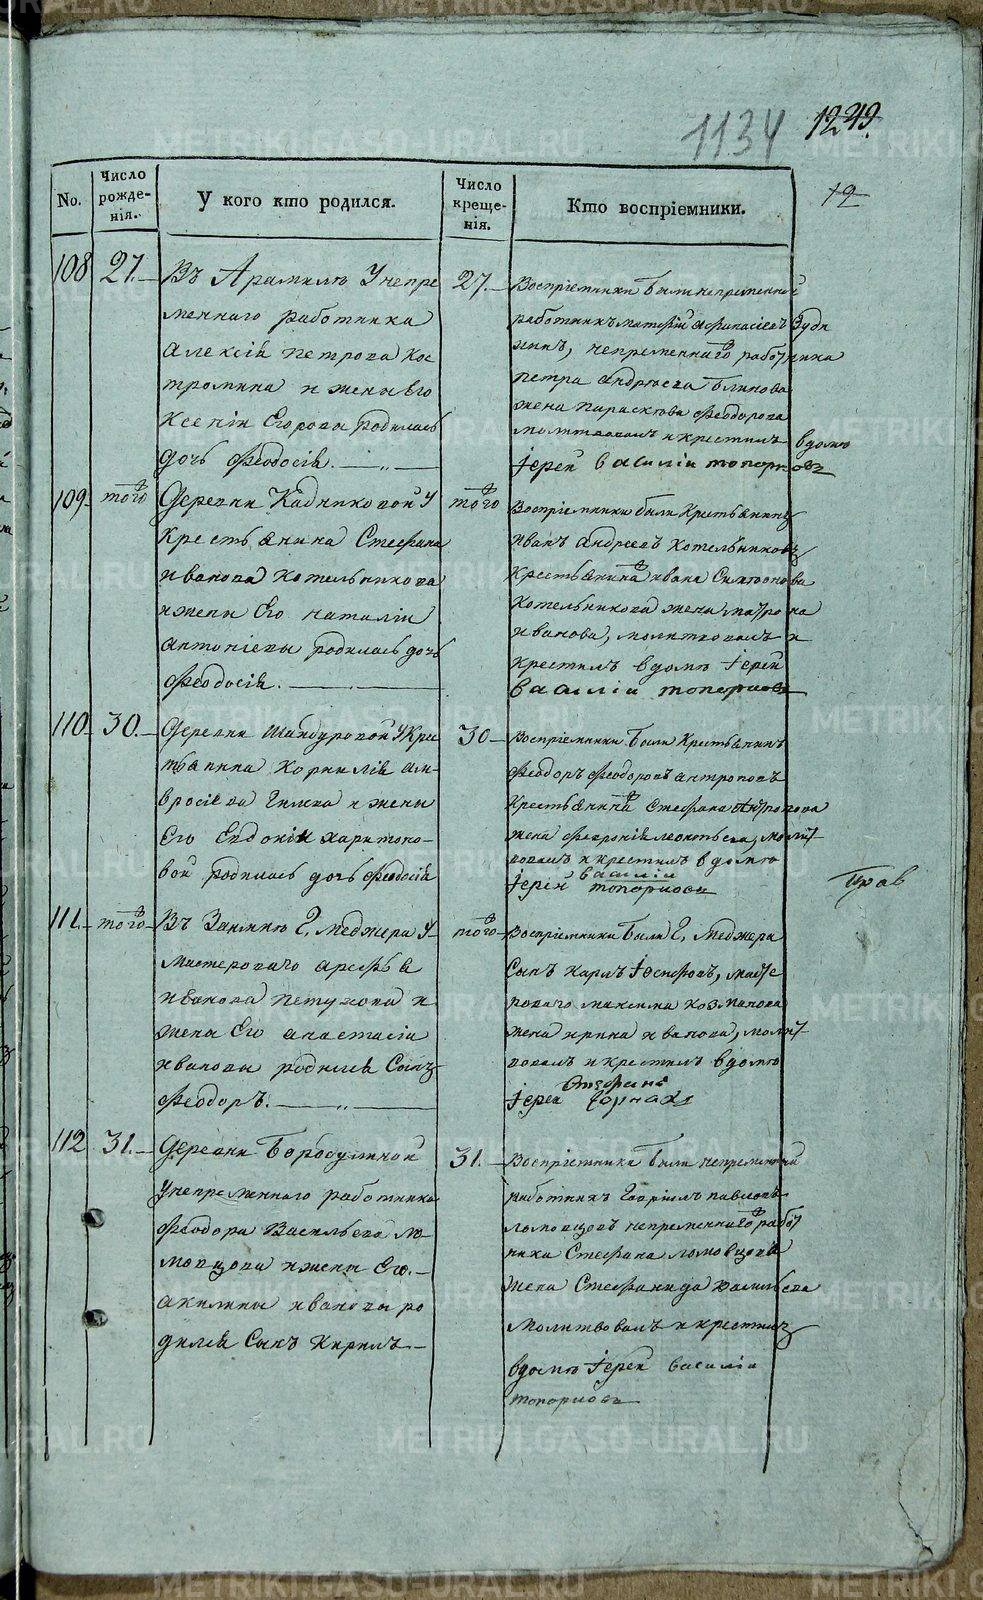 1134 1249.
12
No.
Число рожде-нія.
У кого кто родился.
Число креще-нія.
Кто воспріемники.
108 27. Въ Арамилѣ У непре
менного работника
алексія петрова Кос
тромина и жены Его
Ксеніи Егоровы родилась
дочь Феодосія.
27. Воспріемники были непременной
работникъ матфій афанасіевъ Зуди
нинъ, непременнаго работника
петра андреева блинова
жена параскева Феодорова
молитвовалъ и крестилъ вдомѣ
Іерей василій топорковъ
109 того Деревни Кадниковой У
Крестьянина Стефана
иванова Котельникова
и жены Его наталіи
антоніевы родилась дочь
Феодосія.
того Воспріемники были Крестьянинъ
иванъ андреевъ Котельниковъ
Крестьянина ивана Симеонова
Котельникова жена матрона
иванова, молитвовалъ и
крестилъ вдомѣ Іерей
василій топорковъ
110 30. Деревни Шайдуровой У Кре
стьянина Корнилія ам-
вросіева Гилева и жены
Его Евдокіи харитоно-
вой родилась дочь Феодосія
30 Воспріемники были Крестьянинъ
Феодоръ Феодоровъ антроповъ
Крестьянина Стефана Антропова
жена Феврония леонтьева, молит-
вовалъ и крестилъ вдомѣ
Іерей василій
топорковъ
Прав
111. того Въ Заимкѣ Г. меджера У
мастероваго арефья
иванова петухова и
жены Его анастасіи
ивановы родился Сынъ
Феодоръ.
того Воспріемники были Г. меджера
Сынъ карлъ Іосифовъ, масте
роваго максима козманова
жена ирина иванова, молит-
вовалъ и крестилъ вдомѣ
Іерей Стефанъ
112 31. Деревни Бородулиной
У непременнаго работника
Феодора Васильева ло-
мовцова и жены Его
акилины ивановы ро
дился Сынъ Кирилъ.
31. Воспріемники были непременный
работникъ Гавріилъ павловъ
ломовцовъ непременнаго работ
ника Стефана ломовцова
жена Стефанида васильева
молитвовалъ и крестилъ
вдомѣ Іерей василій
топорковъ
METRIKI.GASO-URAL.RU